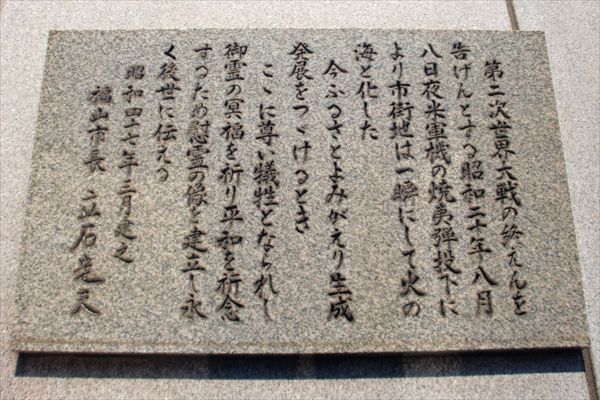 第二次世界大戦の終えんを
告げんとする昭和二十年八月
八日夜米軍機の焼夷弾投下に
より市街地は一瞬にして火の
海と化した
今ふるさとよみがえり生成
発展をつゞけるとき
こゝに尊い犠牲となられし
御霊の冥福を祈り平和を祈念
するため慰霊の像を建立し永
く後世に伝える
昭和四十七年三月建之
福山市長 立石定夫